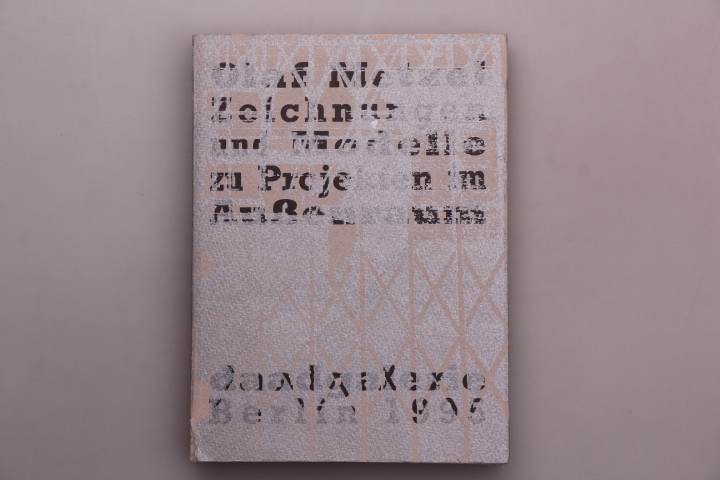 Olaf Metzel
Zeichnungen
und Modelle
zu Projekten im
Außenraum
daadgalerie
Berlin 1995